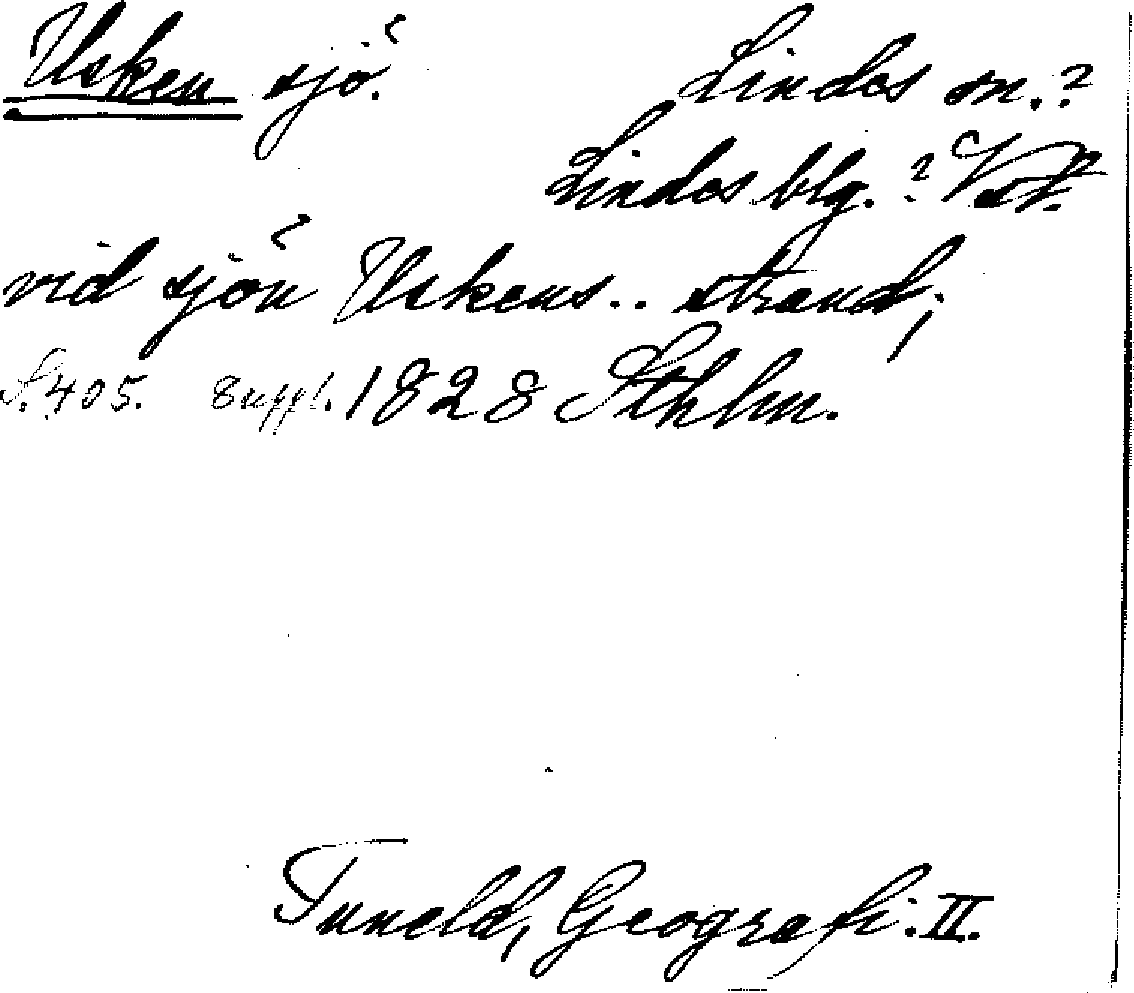 Usken sjö. Lindes sn.?
Lindes blg.? Vstm.
vid sjön Uskens.. strand;
S. 405. Suppl. 1828 Sthlm.
Tuneld, Geografi. II.